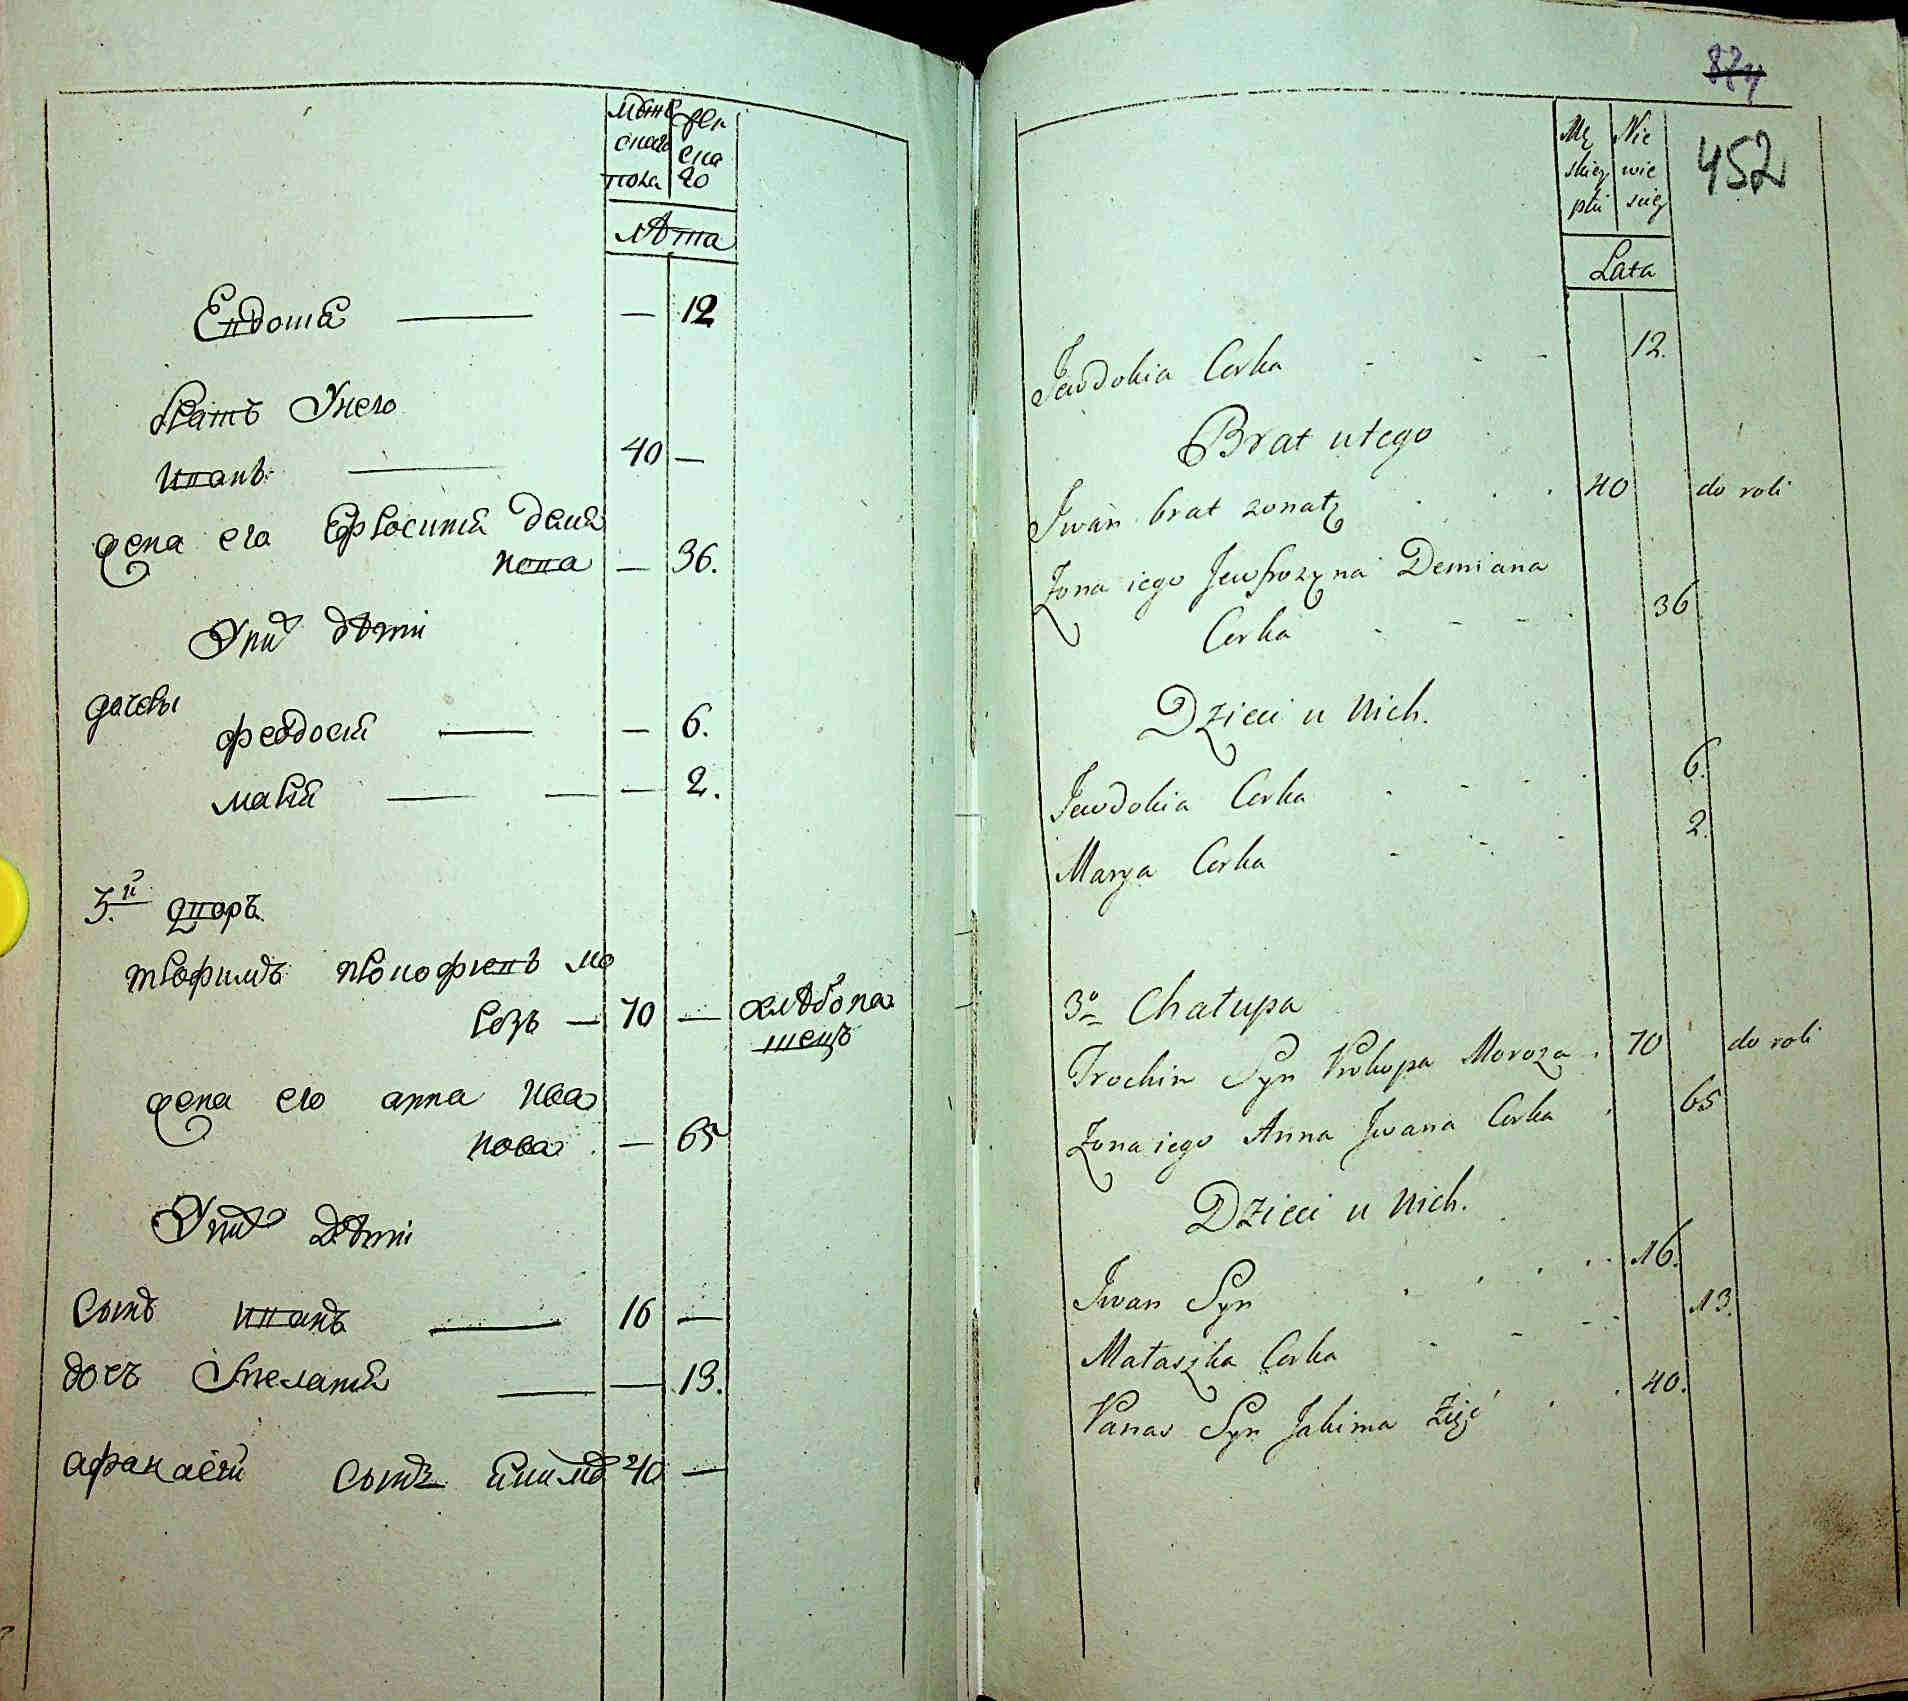 Мужескаго пола
Женскаго
лѣта
Евдокіа — — 12
братъ У него
иванъ — 40 —
жена его Ефросиніа деми
нова — 36.
У них дѣти
дочеры
феодосіа — — 6.
маріа — — — 2.
3.й дворъ
трофимъ прокофиевъ мо
розъ — 70 — хлѣбопа
шецъ
жена его анна ива
нова — 65
У них дѣти
сынъ иванъ — 16 —
дочь — — 13.
афанасей сынъ 40 —
874
452
Męskiey płci
Niewieściey
Lata
Jewdokia Corka 12.
Brat u tego
Jwan brat zonaty 40 do roli
Zona iego Jewfrozyna Demiana
Corka 36
Dzieci u Nich.
Jewdokia Corka 6.
Marya Corka 2.
3o Chałupa
Trochim Syn Prokopa Moroza 70 do roli
Zona iego Anna Jwana Corka 65
Dzieci u Nich.
Jwan Syn 16.
Małaszka Corka 13.
Panas Syn Jakima 40.